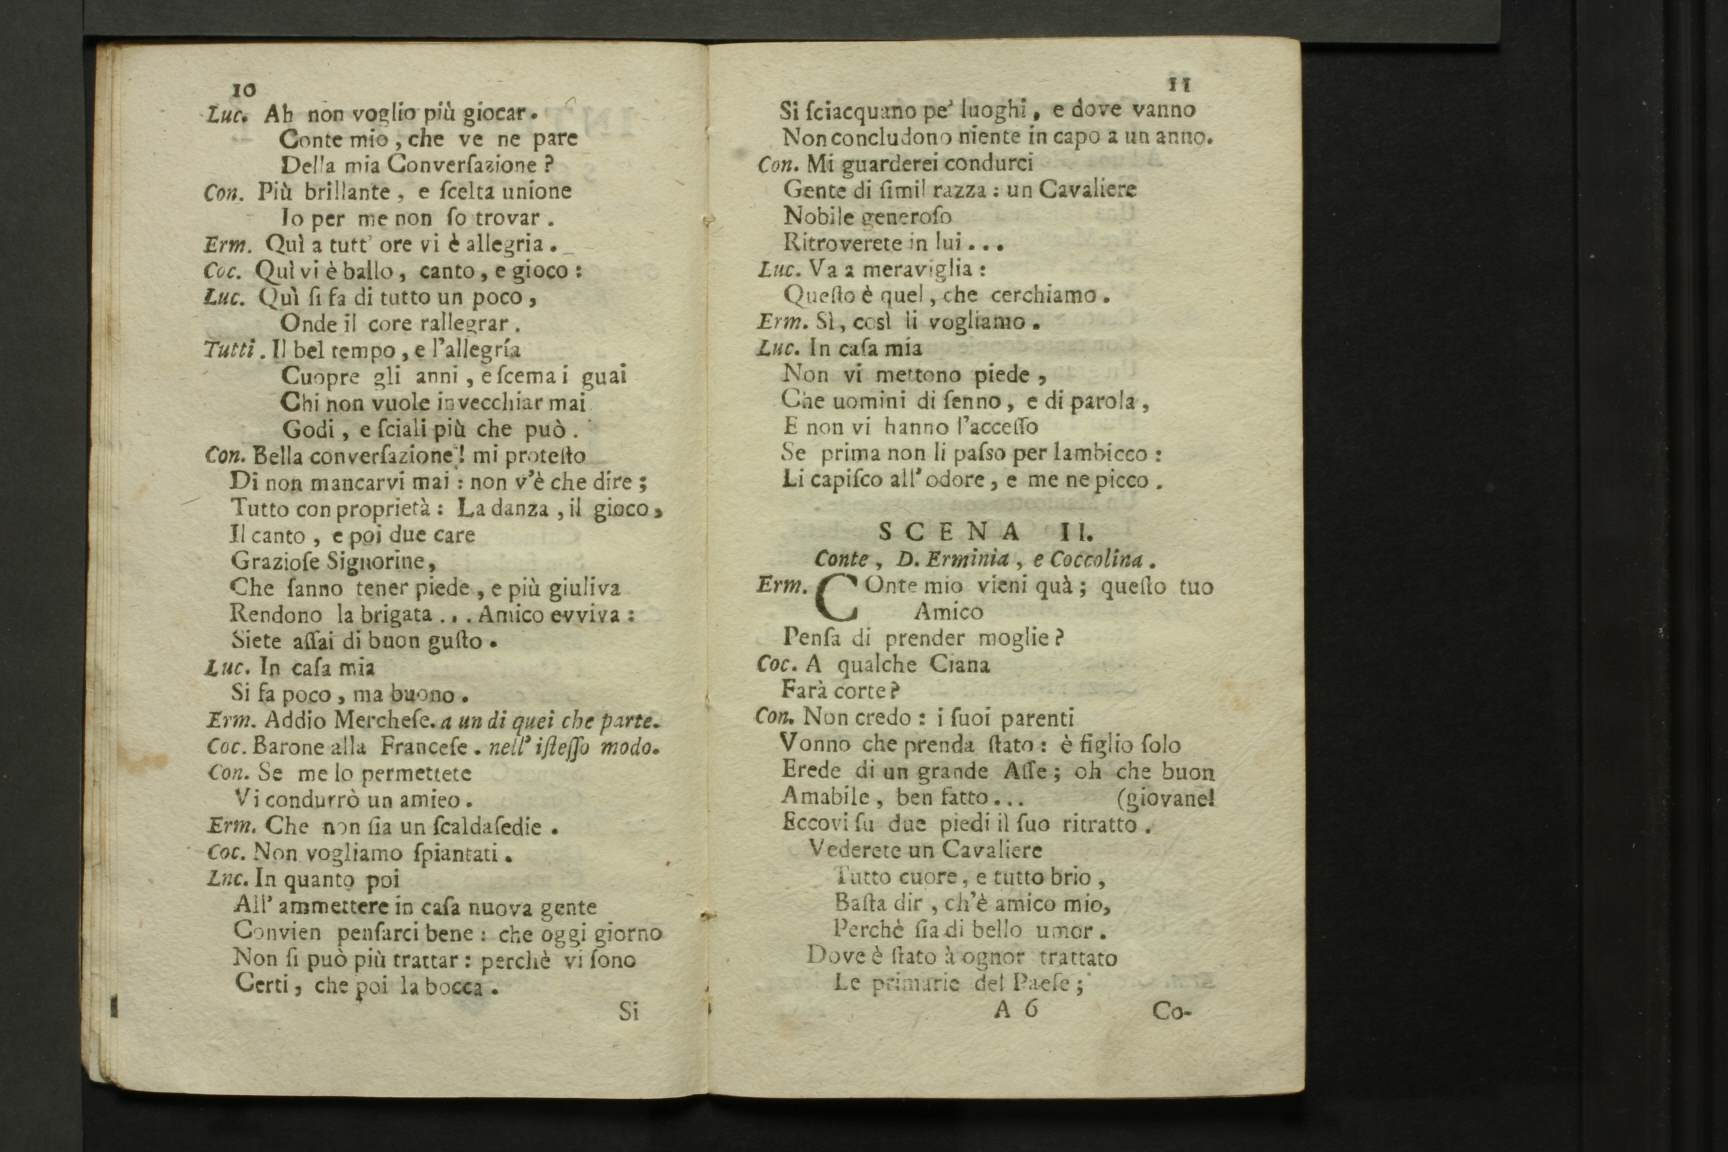 10
Luc. Ah non voglio più giocar.
Conte mio, che ve ne pare
Della mia Converſazione?
Con. Più brillante, e ſcelta unione
Io per me non ſo trovar.
Erm. Quì a tutt' ore vi è allegria.
Coc. Quì vi è ballo, canto, e gioco:
Luc. Quì ſi fa di tutto un poco,
Onde il core rallegrar.
Tutti. Il bel tempo, e l'allegría
Cuopre gli anni, e ſcema i guai
Chi non vuole invecchiar mai
Godi, e ſciali più che può.
Con. Bella converſazione! mi proteſto
Di non mancarvi mai: non v'è che dire;
Tutto con proprietà: La danza, il gioco,
Il canto, e poi due care
Grazioſe Signorine,
Che ſanno tener piede, e più giuliva
Rendono la brigata... Amico evviva:
Siete aſſai di buon guſto.
Luc. In caſa mia
Si fa poco, ma buono.
Erm. Addio Mercheſe. a un di quei che parte.
Coc. Barone alla Franceſe. nell' iſteſſo modo.
Con. Se me lo permettete
Vi condurrò un amico.
Erm. Che non ſia un ſcaldaſedie.
Coc. Non vogliamo ſpiantati.
Lnc. In quanto poi
All' ammettere in caſa nuova gente
Convien penſarci bene: che oggi giorno
Non ſi può più trattar: perchè vi ſono
Certi, che poi la bocca.
Si
11
Si ſciacquano pe' luoghi, e dove vanno
Non concludono niente in capo a un anno.
Con. Mi guarderei condurci
Gente di ſimil razza: un Cavaliere
Nobile generoſo
Ritroverete in lui...
Luc. Va a meraviglia:
Queſto è quel, che cerchiamo.
Erm. Sì, così li vogliamo.
Luc. In caſa mia
Non vi mettono piede,
Che uomini di ſenno, e di parola,
E non vi hanno l'acceſſo
Se prima non li paſso per lambicco:
Li capiſco all' odore, e me ne picco.
SCENA II.
Conte, D. Erminia, e Coccolina.
Erm. COnte mio vieni quà; queſto tuo
Amico
Penſa di prender moglie?
Coc. A qualche Ciana
Farà corte?
Con. Non credo: i ſuoi parenti
Vonno che prenda ſtato: è figlio ſolo
Erede di un grande Aſſe; oh che buon
Amabile, ben fatto... (giovane!
Eccovi ſu due piedi il ſuo ritratto.
Vederete un Cavaliere
Tutto cuore, e tutto brio,
Baſta dir, ch'è amico mio,
Perchè ſia di bello umor.
Dove è ſtato à ognor trattato
Le primarie del Paeſe;
A 6
Co-